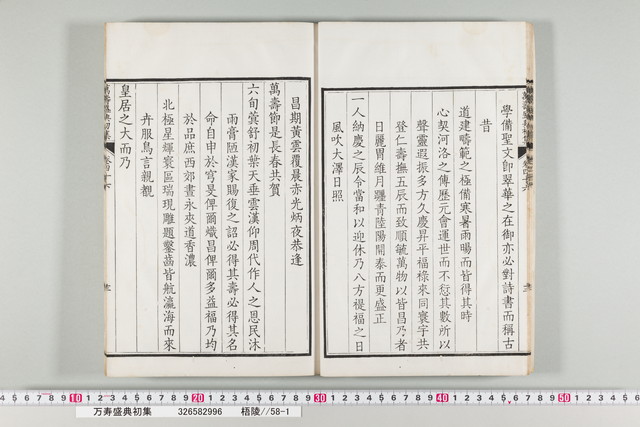 學備聖文卽翠華之在御亦必對詩書而稱古
昔
道建疇範之極備寒暑雨暘而皆得其時
心契河洛之傳歷元會運世而不愆其數所以
聲靈遐振多方久慶昇平福祿來同寰宇共
登仁壽撫五辰而致順毓萬物以皆昌乃者
日麗胃維月躔青陸陽開泰而更盛正
一人納慶之辰令當和以迎休乃八方禔福之日
風吹大澤日照
昌期黃雲覆晨赤光炳夜恭逢
萬壽節是長春共賀
六旬蓂舒初葉天垂雲漢仰周代作人之恩民沐
雨膏陋漢家賜復之詔必得其壽必得其名
命自申於穹昊俾爾熾昌俾爾多益福乃均
於品庶西郊晝永夾道香濃
北極星輝寰區瑞現雕題鑿齒皆航瀛海而來
卉服鳥言親覩
皇居之大而乃
萬壽盛典初集
10 20 30 40 50
万寿盛典初集 326582996 梧陵//58-1